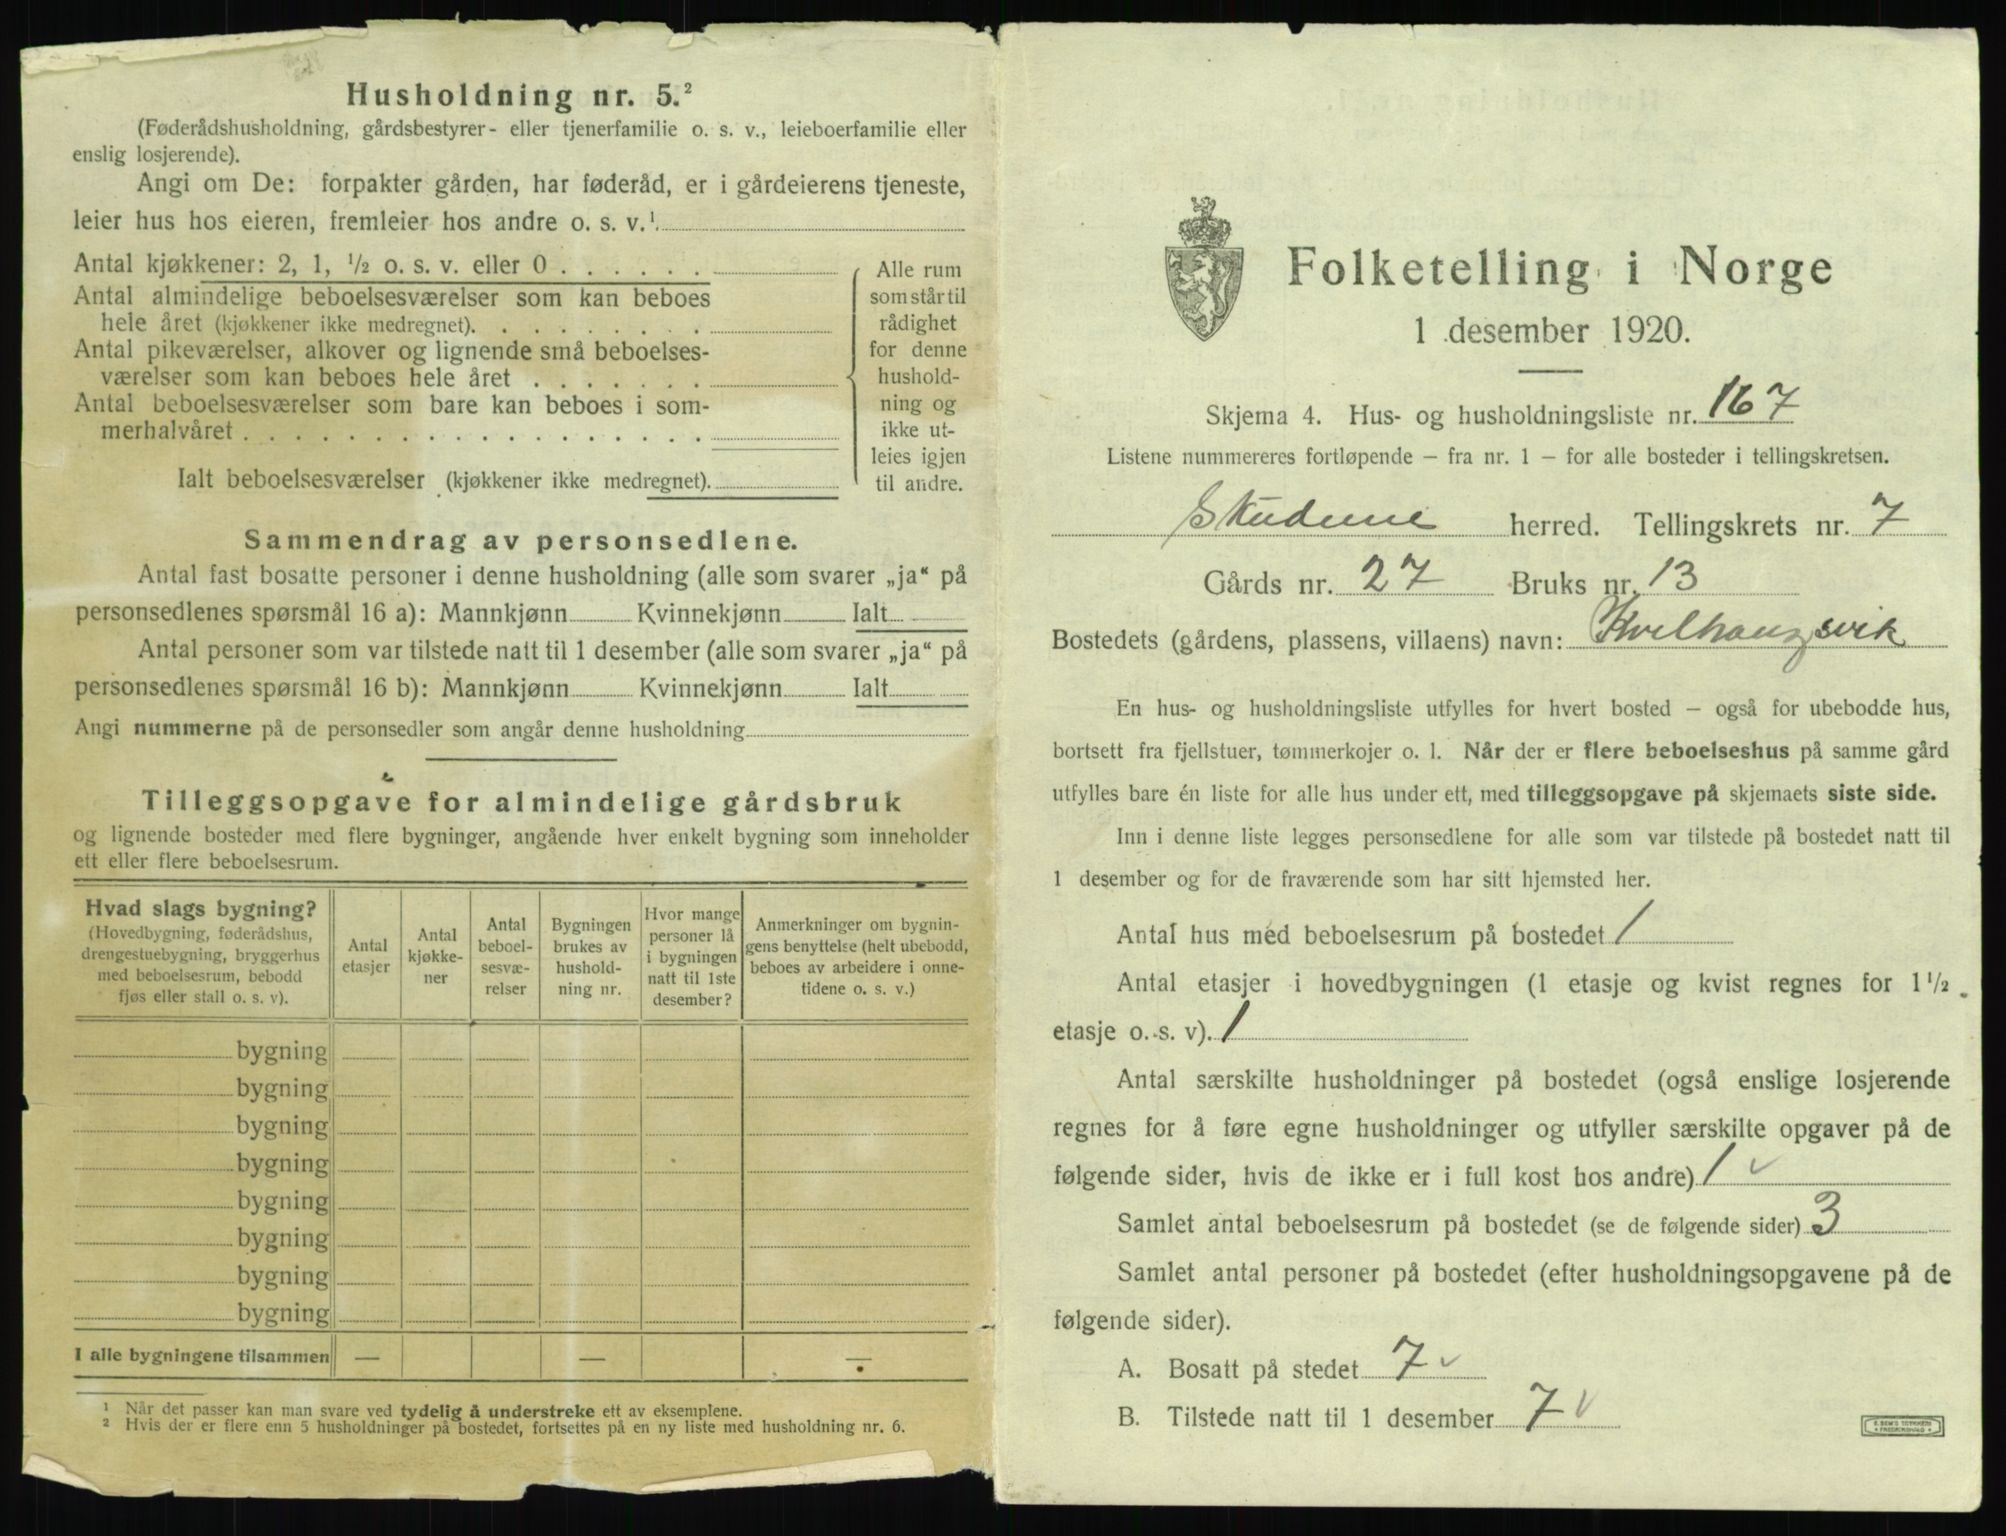 Husholdning nr. 5.²
(Føderådshusholdning, gårdsbestyrer- eller tjenerfamilie o. s. v., leieboerfamilie eller
enslig losjerende).
Angi om De: forpakter gården, har føderåd, er i gårdeierens tjeneste,
leier hus hos eieren, fremleier hos andre o. s. v.¹
Antal kjøkkener: 2, 1, ½ o. s. v. eller 0
Antal almindelige beboelsesværelser som kan beboes
hele året (kjøkkener ikke medregnet).
Antal pikeværelser, alkover og lignende små beboelses-
værelser som kan beboes hele året
Antal beboelsesværelser som bare kan beboes i som-
merhalvåret
Ialt beboelsesværelser (kjøkkener ikke medregnet).
Alle rum
som står til
rådighet
for denne
hushold-
ning og
ikke ut-
leies igjen
til andre.
Sammendrag av personsedlene.
Antal fast bosatte personer i denne husholdning (alle som svarer „ja“ på
personsedlenes spørsmål 16 a): Mannkjønn Kvinnekjønn Ialt
Antal personer som var tilstede natt til 1 desember (alle som svarer „ja“ på
personsedlenes spørsmål 16 b): Mannkjønn Kvinnekjønn Ialt
Angi nummerne på de personsedler som angår denne husholdning
Tilleggsopgave for almindelige gårdsbruk
og lignende bosteder med flere bygninger, angående hver enkelt bygning som inneholder
ett eller flere beboelsesrum.
Hvad slags bygning?
(Hovedbygning, føderådshus,
drengestuebygning, bryggerhus
med beboelsesrum, bebodd
fjøs eller stall o. s. v).
Antal
etasjer
Antal
kjøkke-
ner
Antal
beboel-
sesvæ-
relser
Bygningen
brukes av
hushold-
ning nr.
Hvor mange
personer lå
i bygningen
natt til 1ste
desember?
Anmerkninger om bygnin-
gens benyttelse (helt ubebodd,
beboes av arbeidere i onne-
tidene o. s. v.)
bygning
bygning
bygning
bygning
bygning
bygning
bygning
bygning
I alle bygningene tilsammen — — —
¹ Når det passer kan man svare ved tydelig å understreke ett av eksemplene.
² Hvis der er flere enn 5 husholdninger på bostedet, fortsettes på en ny liste med husholdning nr. 6.
Folketelling i Norge
1 desember 1920.
Skjema 4. Hus- og husholdningsliste nr. 167
Listene nummereres fortløpende – fra nr. 1 – for alle bosteder i tellingskretsen.
Skudene herred. Tellingskrets nr. 7
Gårds nr. 27 Bruks nr. 13
Bostedets (gårdens, plassens, villaens) navn: Kvilhaugsvik
En hus- og husholdningsliste utfylles for hvert bosted – også for ubebodde hus,
bortsett fra fjellstuer, tømmerkojer o. l. Når der er flere beboelseshus på samme gård
utfylles bare én liste for alle hus under ett, med tilleggsopgave på skjemaets siste side.
Inn i denne liste legges personsedlene for alle som var tilstede på bostedet natt til
1 desember og for de fraværende som har sitt hjemsted her.
Antal hus med beboelsesrum på bostedet 1
Antal etasjer i hovedbygningen (1 etasje og kvist regnes for 1½
etasje o. s. v). 1
Antal særskilte husholdninger på bostedet (også enslige losjerende
regnes for å føre egne husholdninger og utfyller særskilte opgaver på de
følgende sider, hvis de ikke er i full kost hos andre) 1 ✓
Samlet antal beboelsesrum på bostedet (se de følgende sider) 3
Samlet antal personer på bostedet (efter husholdningsopgavene på de
følgende sider).
A. Bosatt på stedet 7 ✓
B. Tilstede natt til 1 desember 7 ✓